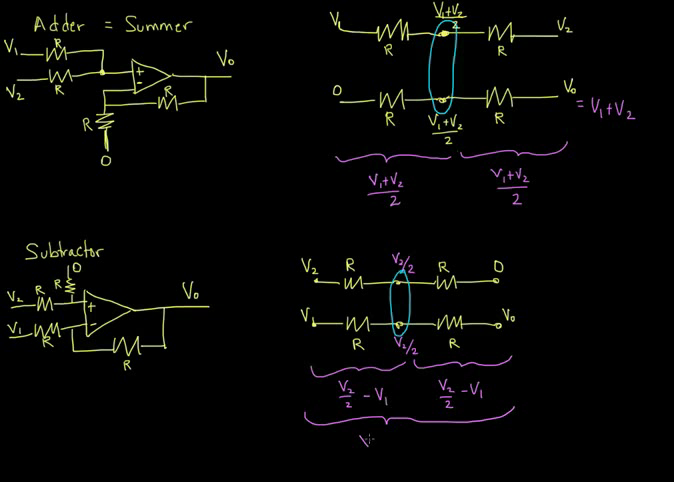 Adder = Summer
V₁ R
V₂ R
+
-
V₀
R
R
0
(V₁+V₂)/2
V₁ R R V₂
0 R R V₀
= V₁+V₂
(V₁+V₂)/2
(V₁+V₂)/2 (V₁+V₂)/2
Subtractor
0
R
V₂ R
V₁ R
+
-
V₀
R
V₂/2
V₂ R R 0
V₁ R R V₀
V₂/2
V₂/2 - V₁ V₂/2 - V₁